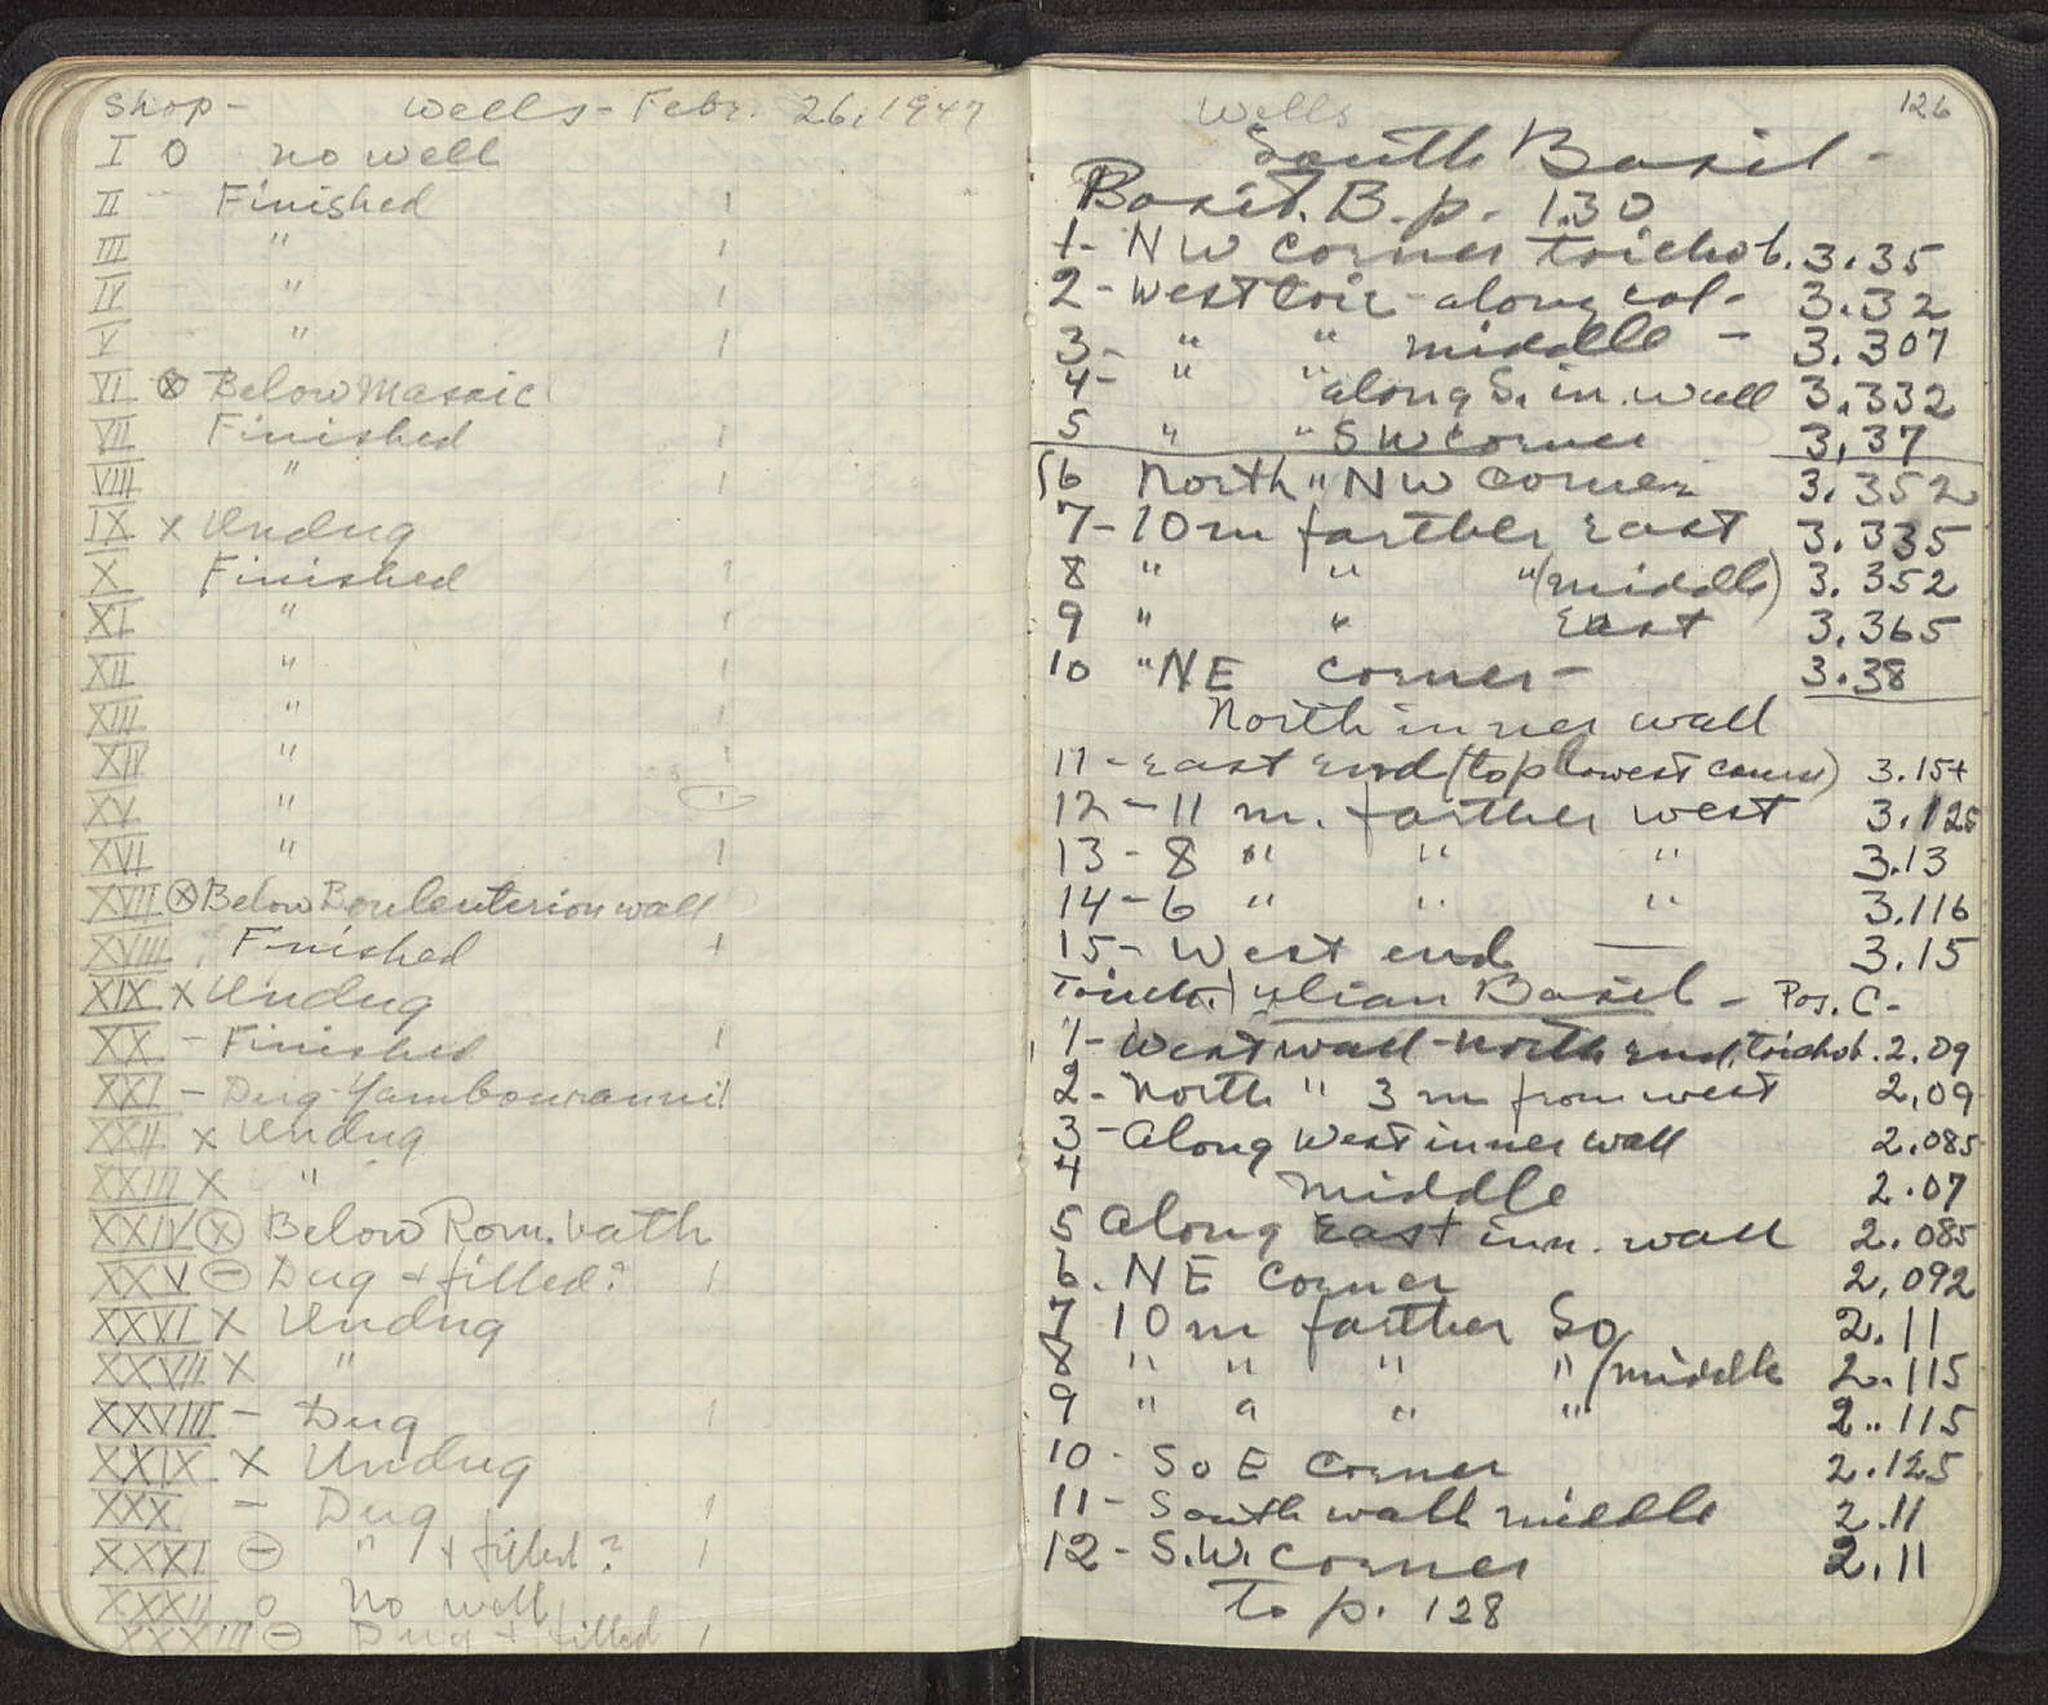 Shop - Wells - Febr. 26, 1947
I O no well
II - Finished 1
III " 1
IV " 1
V " 1
VI ⊗ Below Mosaic
VII Finished 1
VIII " 1
IX x Undug
X Finished 1
XI " 1
XII " 1
XIII " 1
XIV " 1
XV " 1
XVI " 1
XVII ⊗ Below Bouleuterion wall
XVIII Finished +
XIX x Undug
XX - Finished 1
XXI - Dug Yambouranni 1
XXII x Undug
XXIII x "
XXIV ⊗ Below Rom. bath
XXV ⊖ Dug + filled? 1
XXVI x Undug
XXVII x "
XXVIII - Dug 1
XXIX x Undug
XXX - Dug 1
XXXI ⊖ " + filled? 1
XXXII o No well
XXXIII ⊖ Dug + filled 1
126
Wells
South Basil -
Basil. B.p. 1.30
1- NW corner toichob. 3.35
2- West toic - along col- 3.32
3- " " middle - 3.307
4- " " along S. in. wall 3.332
5 " " SW corner 3.37
6 North " NW corner 3.352
7- 10 m farther east 3.335
8 " " " (middle) 3.352
9 " " East 3.365
10 " NE corner - 3.38
North inner wall
11 - East end (top lowest course) 3.15+
12 - 11 m. farther west 3.125
13 - 8 " " " 3.13
14 - 6 " " " 3.116
15 - West end — 3.15
Toich. Julian Basil - Pos. C -
1- West wall - North end, toichob. 2.09
2- North " 3 m from west 2.09
3 - Along West inner wall 2.085
4 middle 2.07
5 Along East inn. wall 2.085
6. NE corner 2.092
7 10 m farther So 2.11
8 " " " " / middle 2.115
9 " " " " 2.115
10 - So E corner 2.125
11 - South wall middle 2.11
12 - S.W. corner 2.11
To p. 128